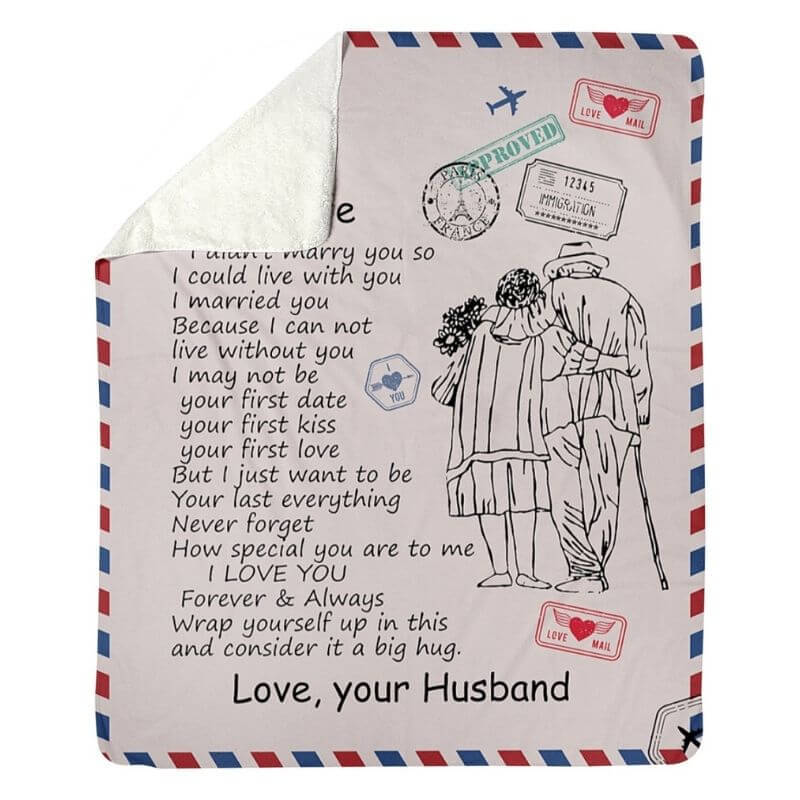 LOVE MAIL
APPROVED
PARIS
FRANCE
12345
IMMIGRATION
e
I didn't marry you so
I could live with you
I married you
Because I can not
live without you
I may not be
your first date
your first kiss
your first love
But I just want to be
Your last everything
Never forget
How special you are to me
I LOVE YOU
Forever & Always
Wrap yourself up in this
and consider it a big hug.
I
YOU
LOVE MAIL
Love, your Husband